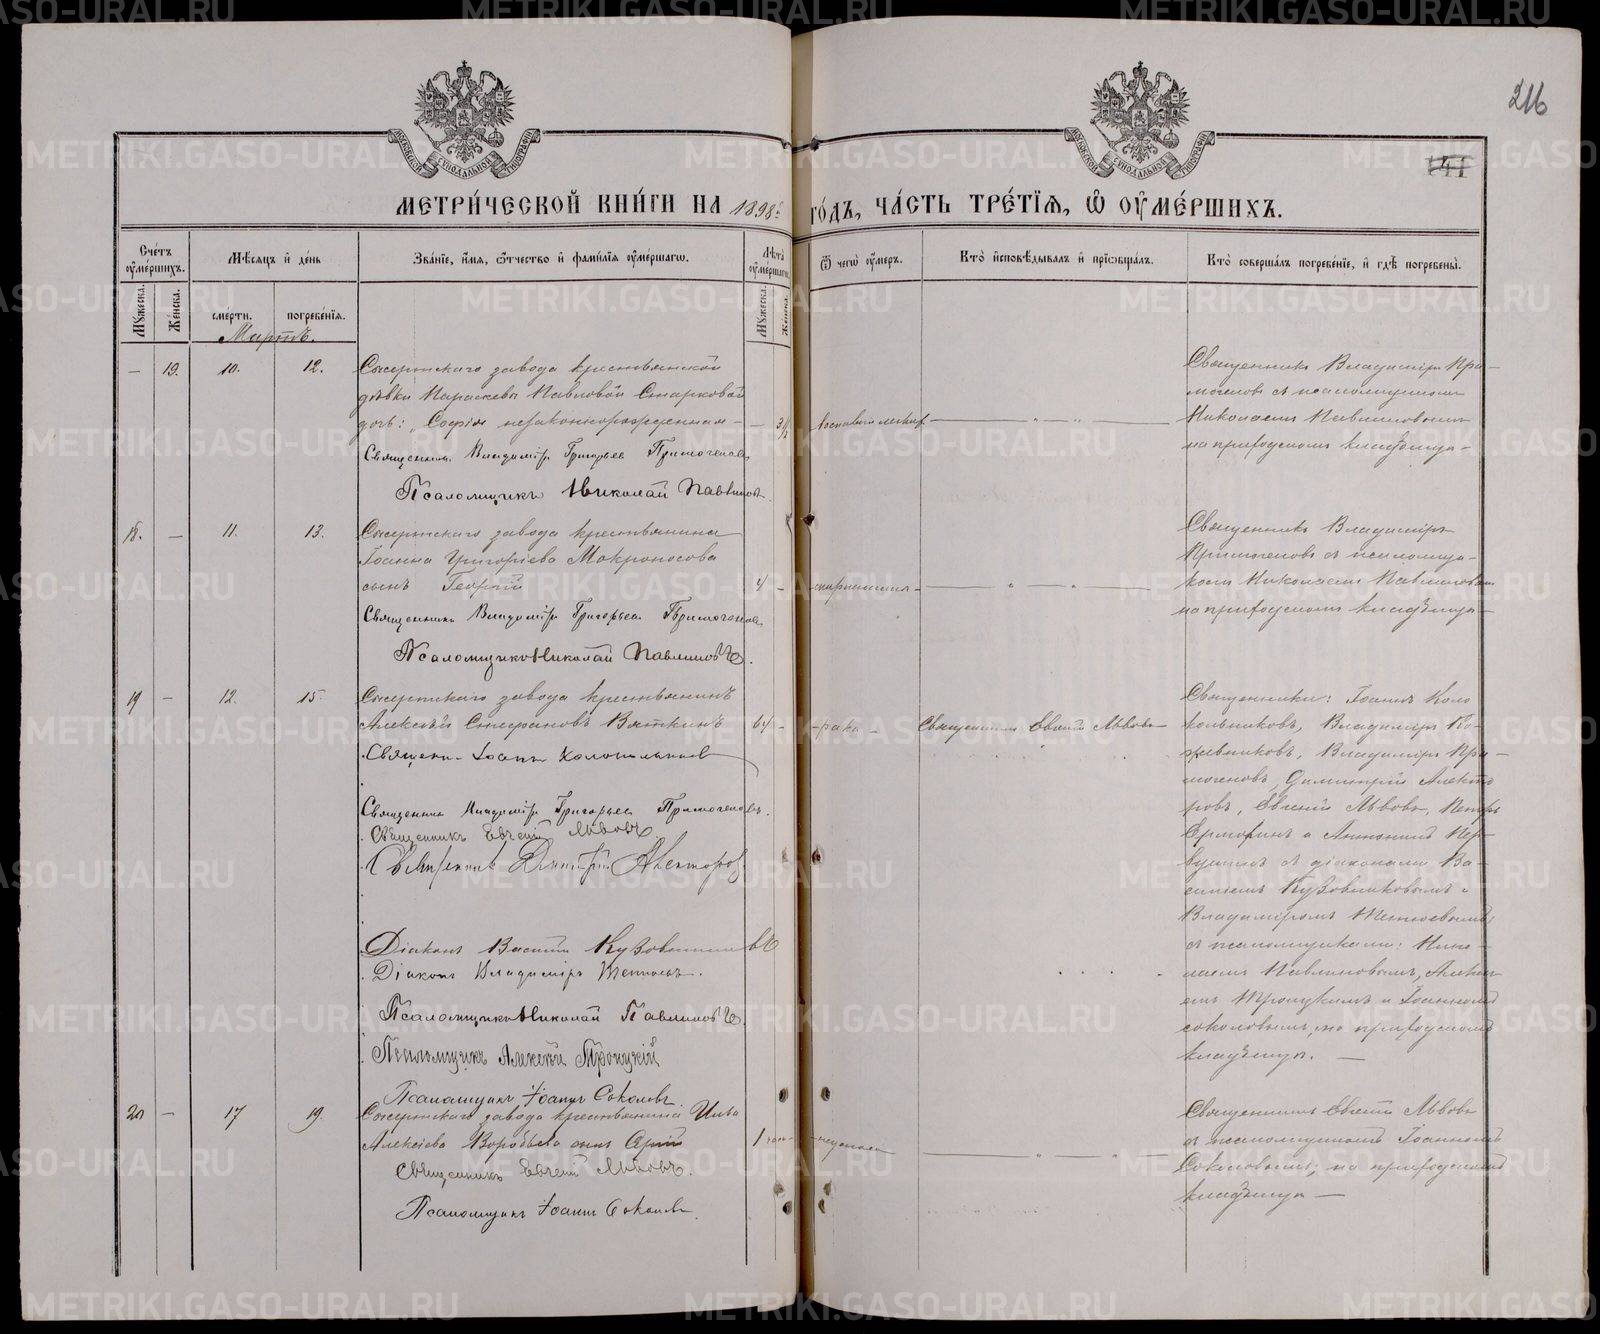 216
141
МОСКОВСКОЙ СѴНОДАЛЬНОЙ ТИПОГРАФІИ
МОСКОВСКОЙ СѴНОДАЛЬНОЙ ТИПОГРАФІИ
МЕТРИ́ЧЕСКОЙ КНИ́ГИ НА 1898й ГО́ДЪ, ЧА́СТЬ ТРЕ́ТІѦ, Ѡ ОУМЕ́РШИХЪ.
Сче́тъ оуме́ршихъ.
Мꙋ́жеска.
Же́нска.
Мѣ́сяцъ и де́нь
сме́рти.
погребе́нїя.
Зва́нїе, и́мя, ѻ́тчество и фами́лїя оуме́ршагѡ.
Лѣ́та оуме́ршагѡ.
Мꙋ́жеска.
Же́нска.
Ѿ чегѡ̀ оу́меръ.
Кто̀ и҆сповѣ́дывалъ и҆ прїѡбща́лъ.
Кто̀ соверша́лъ погребе́нїе, и҆ гдѣ̀ погребены̀.
Мартъ.
— 19. 10. 12.
Сысертскаго завода крестьянской
дѣвки Параскевы Павловой Старковой
дочь: София незаконнорожденная — — 3½
Священникъ Владимір Григорьев Примогенов
Псаломщикъ Николай Павлинов
Священникъ Владиміръ При-
могеновъ съ псаломщикомъ
Николаемъ Павлиновымъ
на приходскомъ кладбищѣ —
18. — 11. 13.
Сысертскаго завода крестьянина
Іоанна Григоріева Мокроносова
сынъ Георгій 4 —
Священникъ Владимір Григорьев Примогенов
Псаломщикъ Николай Павлиновъ.
Священникъ Владиміръ
Примогеновъ съ псаломщи-
комъ Николаемъ Павлиновымъ
на приходскомъ кладбищѣ —
19 — 12. 15.
Сысертскаго завода крестьянинъ
Алексѣй Стефановъ Вяткинъ 64 —
рака —
Священникъ Евгеній Львовъ
Священ. Іоанн Колокольников
Священник Владимір Григорьев Примогенов.
Священникъ Евгеній Львовъ
Священник Димитрій Алекторов
Діаконъ Василій Кузовниковъ
Діаконъ Владиміръ
Псаломщикъ Николай Павлиновъ
Псаломщикъ Алексѣй Троицкій
Псаломщик Іоанн Соколов.
Священники: Іоаннъ Коло
кольниковъ, Владиміръ Ко-
жевниковъ, Владиміръ При-
могеновъ, Димитрій Алекто
ровъ, Евгеній Львовъ, Петръ
и Антоній Пер-
вушинъ съ діаконами Ва-
силіемъ Кузовниковымъ и
Владиміромъ
съ псаломщиками: Нико-
лаемъ Павлиновымъ, Алексѣ-
емъ Троицкимъ и Іоанномъ
Соколовымъ, на приходскомъ
кладбищѣ. —
20 — 17 19.
Сысертскаго завода крестьянина Ильи
Алексѣева Воробьева сынъ 1
Священникъ Евгеній Львовъ.
Псаломщик Іоанн Соколов
Священникъ Евгеній Львовъ
съ псаломщикомъ Іоанномъ
Соколовымъ, на приходскомъ
кладбищѣ —
METRIKI.GASO-URAL.RU